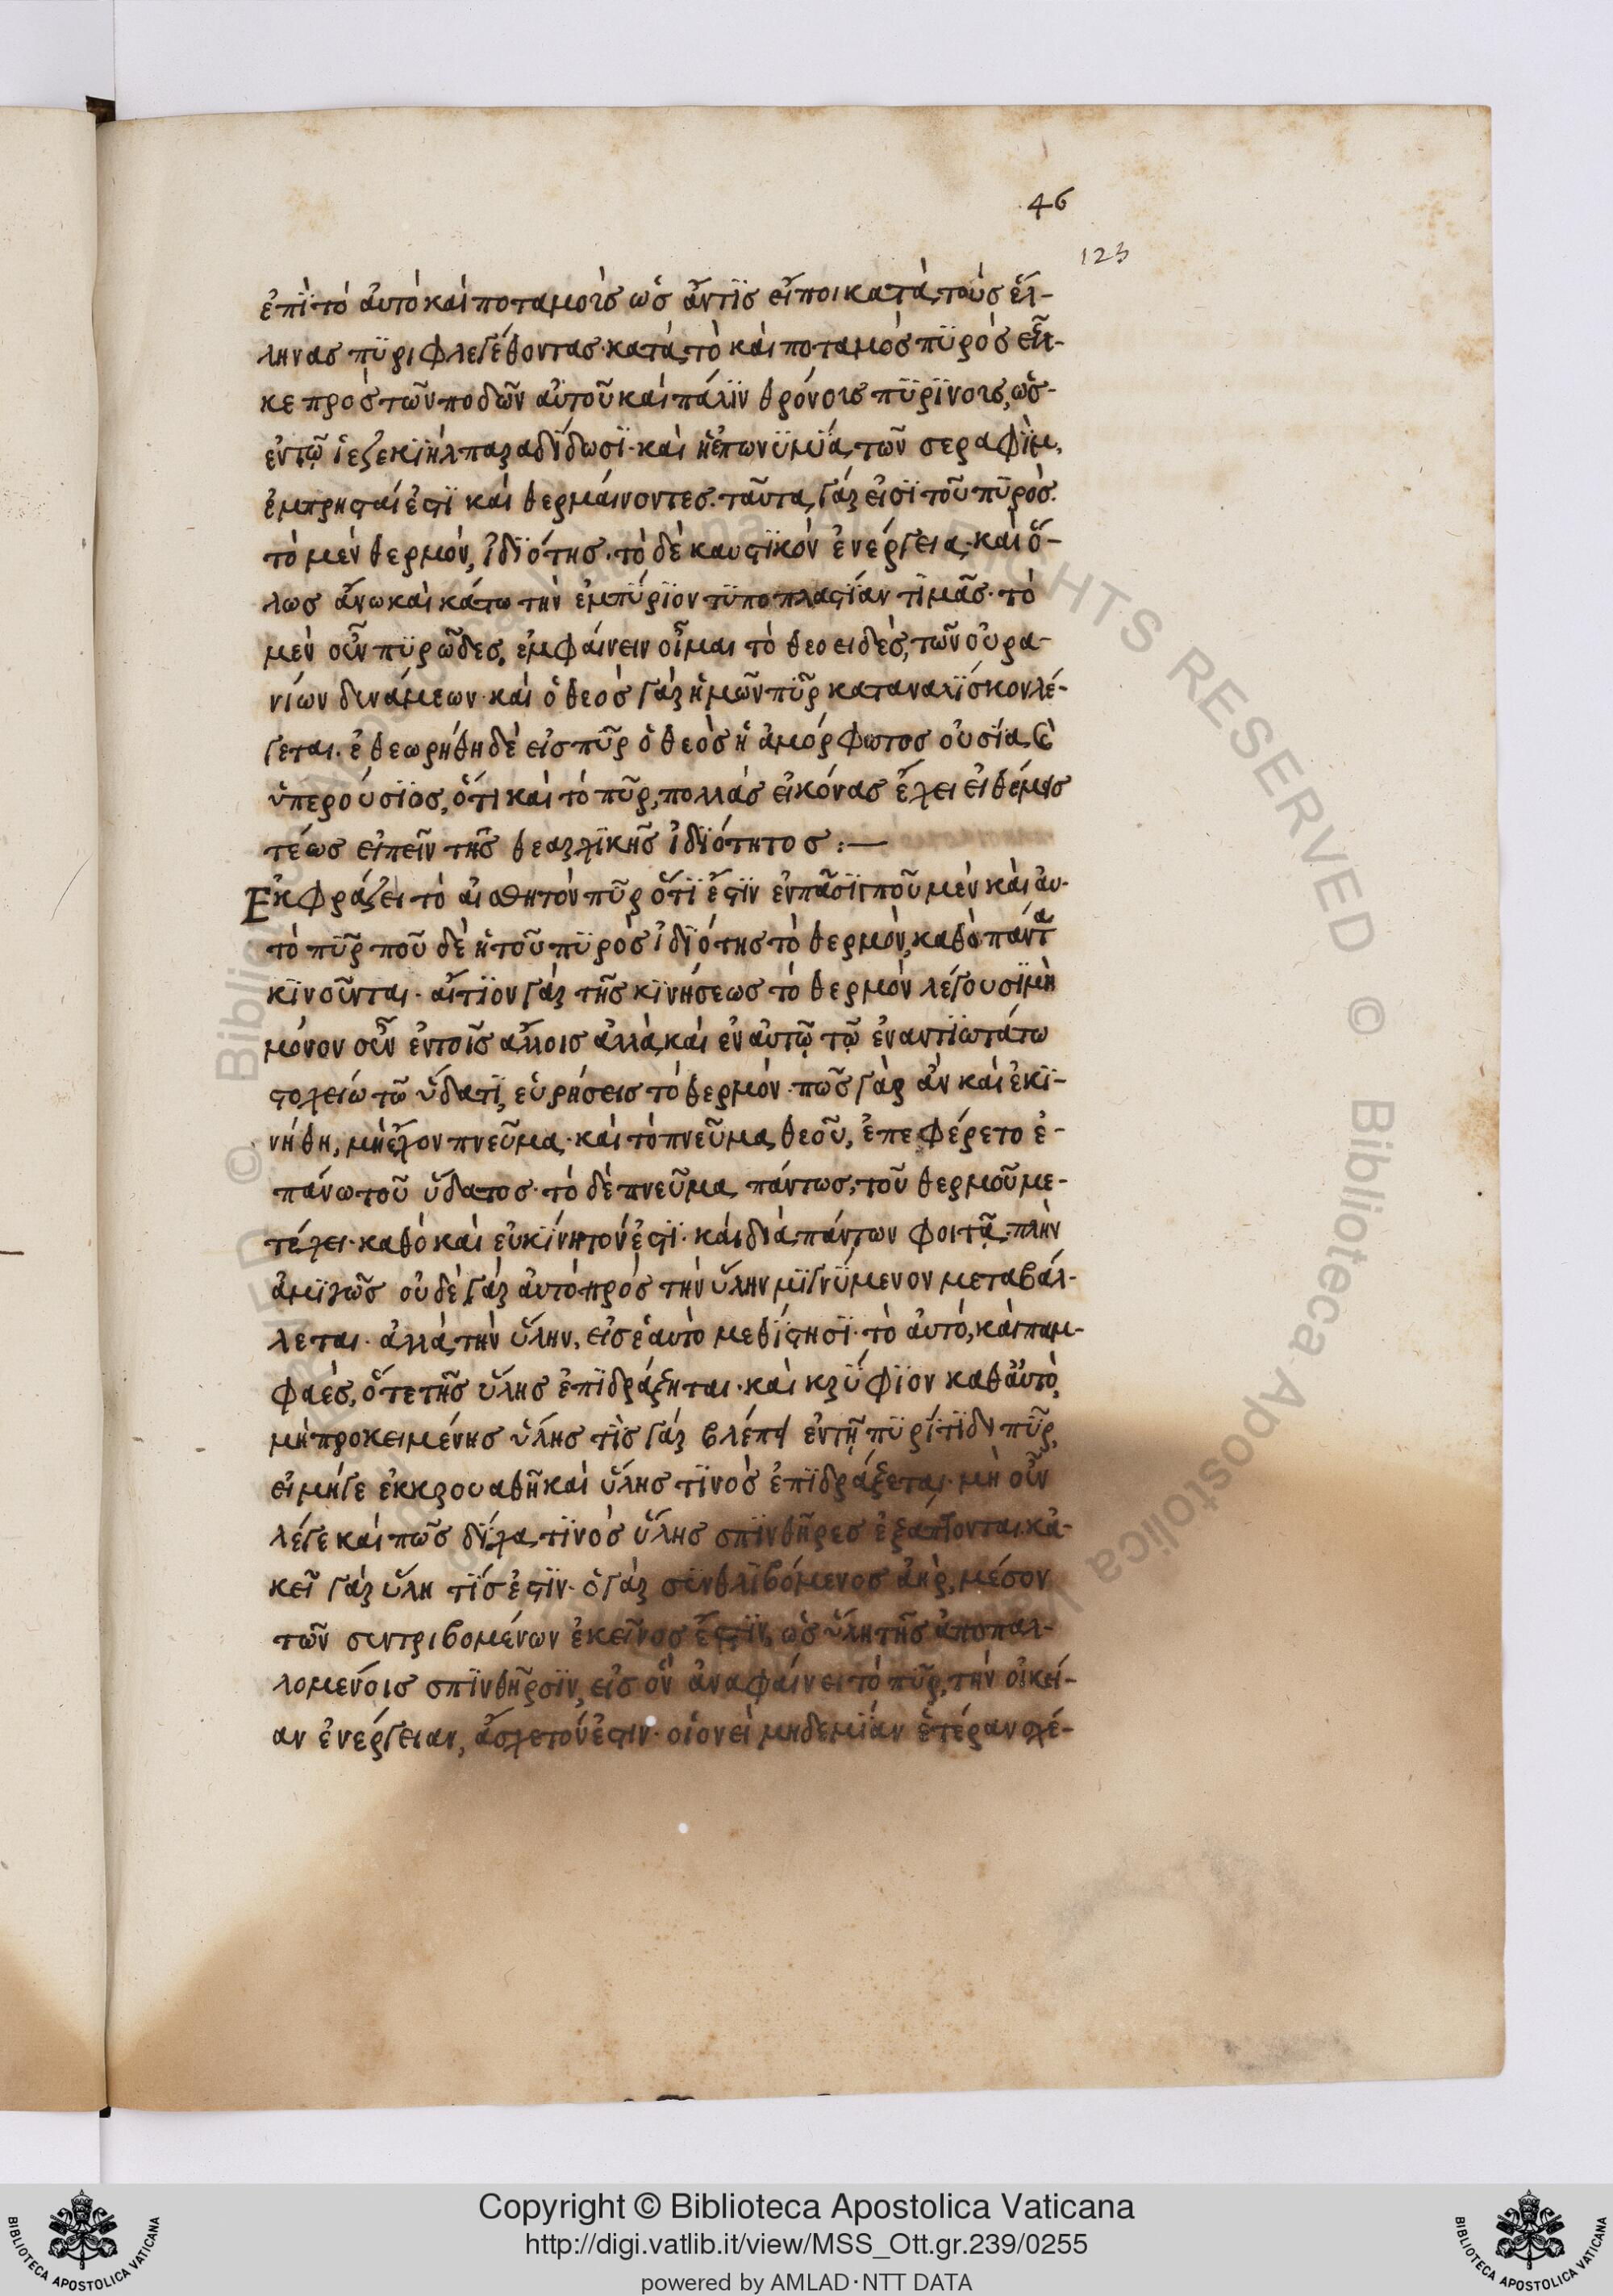 46
123
ἐπὶ τὸ αὐτὸ καὶ ποταμοῖς ὡς ἄν τις εἴποι κατὰ τοὺς ἕλ-
ληνας πυριφλεγέθοντας· κατὰ τὸ καὶ ποταμὸς πυρὸς εἷλ-
κε πρὸς τῶν ποδῶν αὐτοῦ καὶ πάλιν θρόνοις πυρίνοις, ὡς
ἐν τῷ ἰεζεκιὴλ παραδίδωσι· καὶ ἡ ἐπωνυμία τῶν σεραφὶμ,
ἐμπρησταί ἐστι καὶ θερμαίνοντες. ταῦτα γάρ εἰσι τοῦ πυρός.
τὸ μὲν θερμὸν, ἰδιότης· τὸ δὲ καυστικὸν ἐνέργεια· καὶ ὅ-
λως ἄνω καὶ κάτω τὴν ἐμπύριον τυποπλαστίαν τιμᾶς· τὸ
μὲν οὖν πυρῶδες, ἐμφαίνειν οἶμαι τὸ θεοειδὲς, τῶν οὐρα-
νίων δυνάμεων· καὶ ὁ θεὸς γὰρ ἡμῶν πῦρ καταναλίσκον λέ-
γεται. ἐθεωρήθη δὲ εἰς πῦρ ὁ θεὸς ἡ ἀμόρφωτος οὐσία καὶ
ὑπερούσιος, ὅτι καὶ τὸ πῦρ, πολλὰς εἰκόνας ἔχει εἰ θέμις
τέως εἰπεῖν τῆς θεαρχικῆς ἰδιότητος :—
Ἐκφράζει τὸ αἰσθητὸν πῦρ ὅτι ἔστιν ἐν πᾶσι· ποῦ μὲν καὶ αὐ-
τὸ πῦρ ποῦ δὲ ἡ τοῦ πυρὸς ἰδιότης τὸ θερμὸν, καθὸ πάντα
κινοῦνται· αἴτιον γὰρ τῆς κινήσεως τὸ θερμὸν λέγουσι μὴ
μόνον οὖν ἐν τοῖς ἄλλοις ἀλλὰ καὶ ἐν αὐτῷ τῷ ἐναντιωτάτω
στοχείω τῶ ὕδατι, εὑρήσεις τὸ θερμόν· πῶς γὰρ ἂν καὶ ἐκι-
νήθη, μὴ ἔχον πνεῦμα· καὶ τὸ πνεῦμα θεοῦ, ἐπεφέρετο ἐ-
πάνω τοῦ ὕδατος· τὸ δὲ πνεῦμα πάντως, τοῦ θερμοῦ με-
τέχει· καθὸ καὶ εὐκίνητόν ἐστι· καὶ διὰ πάντων φοιτᾷ· πλὴν
ἀμιγῶς οὐδὲ γὰρ αὐτὸ πρὸς τὴν ὕλην μιγνύμενον μεταβάλ-
λεται· ἀλλὰ τὴν ὕλην, εἰς ἑαυτὸ μεθίστησι· τὸ αὐτὸ, καὶ παμ-
φαὲς, ὅτε τῆς ὕλης ἐπιδράξηται· καὶ κρύφιον καθ' αὑτὸ,
μὴ προκειμένης ὕλης τίς γὰρ βλέπει ἐν τῇ πυρίτιδι πῦρ,
εἰ μήγε ἐκκρουσθῆ καὶ ὕλης τινὸς ἐπιδράξεται· μὴ οὖν
λέγε καὶ πῶς δίχα τινὸς ὕλης σπινθῆρες ἐξάπτονται· κἀ-
κεῖ γὰρ ὕλη τίς ἐστιν· ὁ γὰρ συνθλιβόμενος ἀὴρ, μέσον
τῶν συντριβομένων ἐκεῖνος ἔστιν, ὡς ὕλη τῆς ἀποπαλ-
λομένοις σπινθῆρσιν, εἰς ὃν ἀναφαίνει τὸ πῦρ, τὴν οἰκεί-
αν ἐνέργειαν, ἄσχετόν ἐστιν· οἱονεὶ μηδεμίαν ἑτέραν σχέ-
Copyright © Biblioteca Apostolica Vaticana
http://digi.vatlib.it/view/MSS_Ott.gr.239/0255
powered by AMLAD·NTT DATA